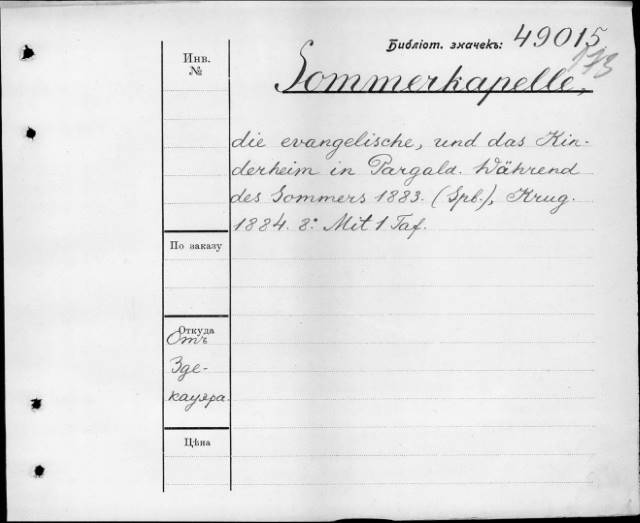 Библіот. значекъ: 49015
173
Инв.
№
Sommerkapelle,
die evangelische, und das Kin-
derheim in Pargala. Während
des Sommers 1883. (Spb.), Krug.
1884. 8º Mit 1 Taf.
По заказу
Откуда
Отъ
Зде-
кауера
Цѣна